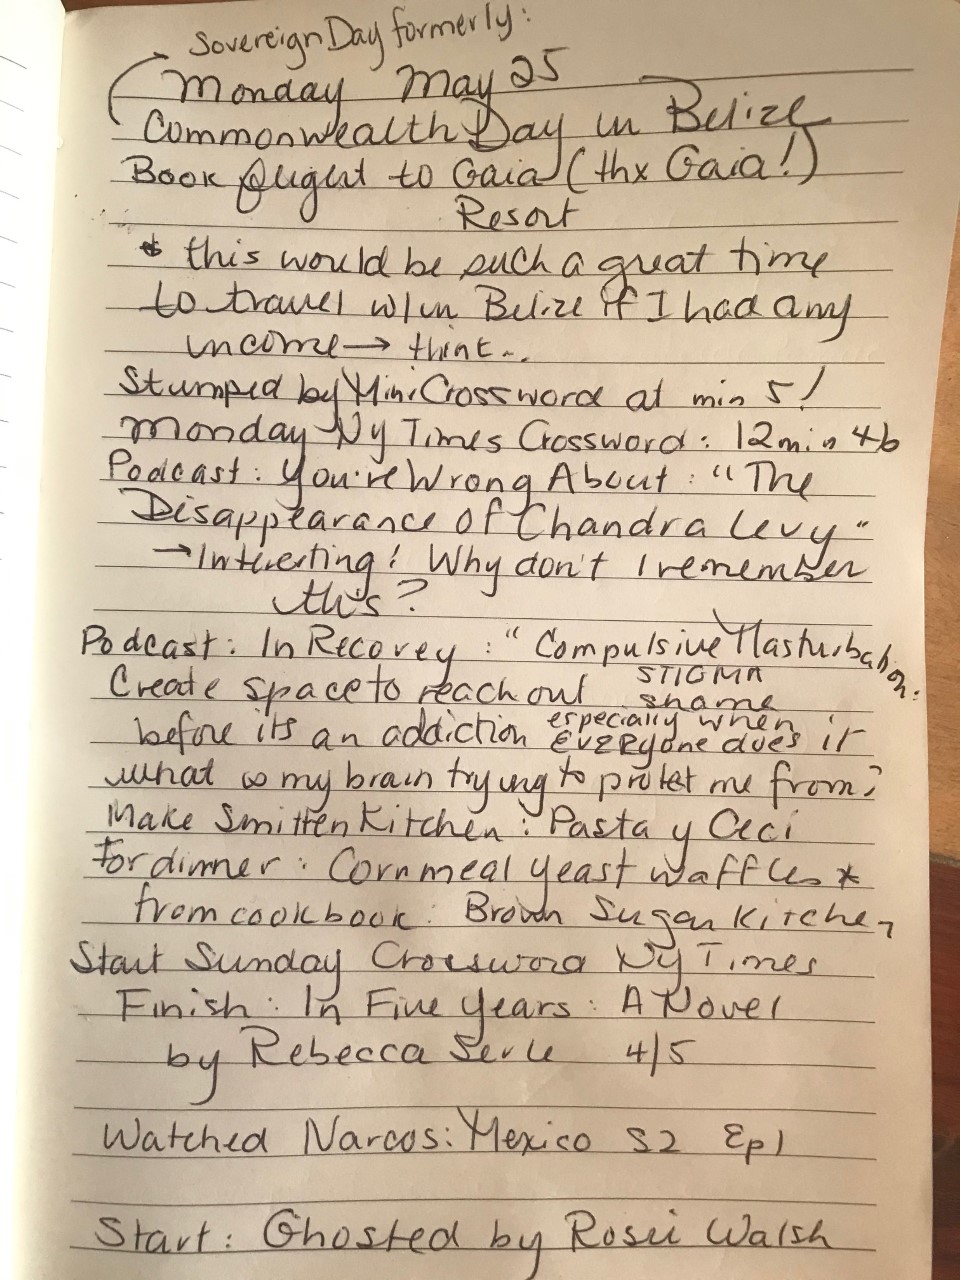 Sovereign Day formerly:
Monday May 25
Commonwealth Day in Belize
Book flight to Gaia (thx Gaia!)
Resort
* this would be such a great time
to travel w/in Belize if I had any
income → think..
Stumped by Mini Crossword at min 5!
Monday Ny Times Crossword: 12min 46
Podcast: You're Wrong About: "The
Disappearance of Chandra Levy"
→ Interesting! Why don't I remember
this?
Podcast: In Recovey: "Compulsive Masturbation:
Create space to reach out STIGMA
shame
before its an addiction especially when
EVERyone does it
what is my brain trying to protet me from?
Make Smitten Kitchen: Pasta y Ceci
for dinner: Cornmeal yeast waffles *
from cookbook: Brown Sugar Kitchen
Start Sunday Crossword Ny Times
Finish: In Five Years: A Novel
by Rebecca Serle 4/5
Watched Narcos: Mexico S2 Ep1
Start: Ghosted by Rosie Walsh